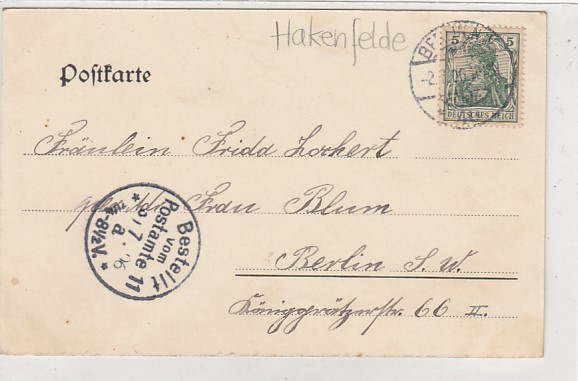 Hakenfelde
Postkarte
5 5
DEUTSCHES REICH
Fräulein Frida Lockert
Frau Blum
Berlin S.W.
Königgrätzerstr. 66 II.
Bestellt
vom
Postamte 11
7. 06
8½V.